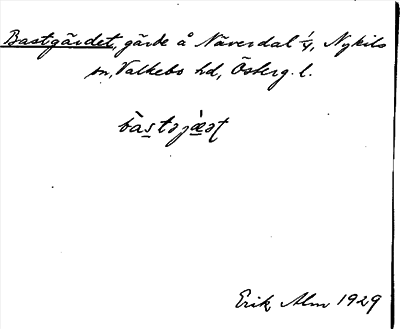 Bastgärdet, gärde å Näverdal 1/4, Nykils
sn, Valkebo hd, Österg. l.
Erik Alm 1929